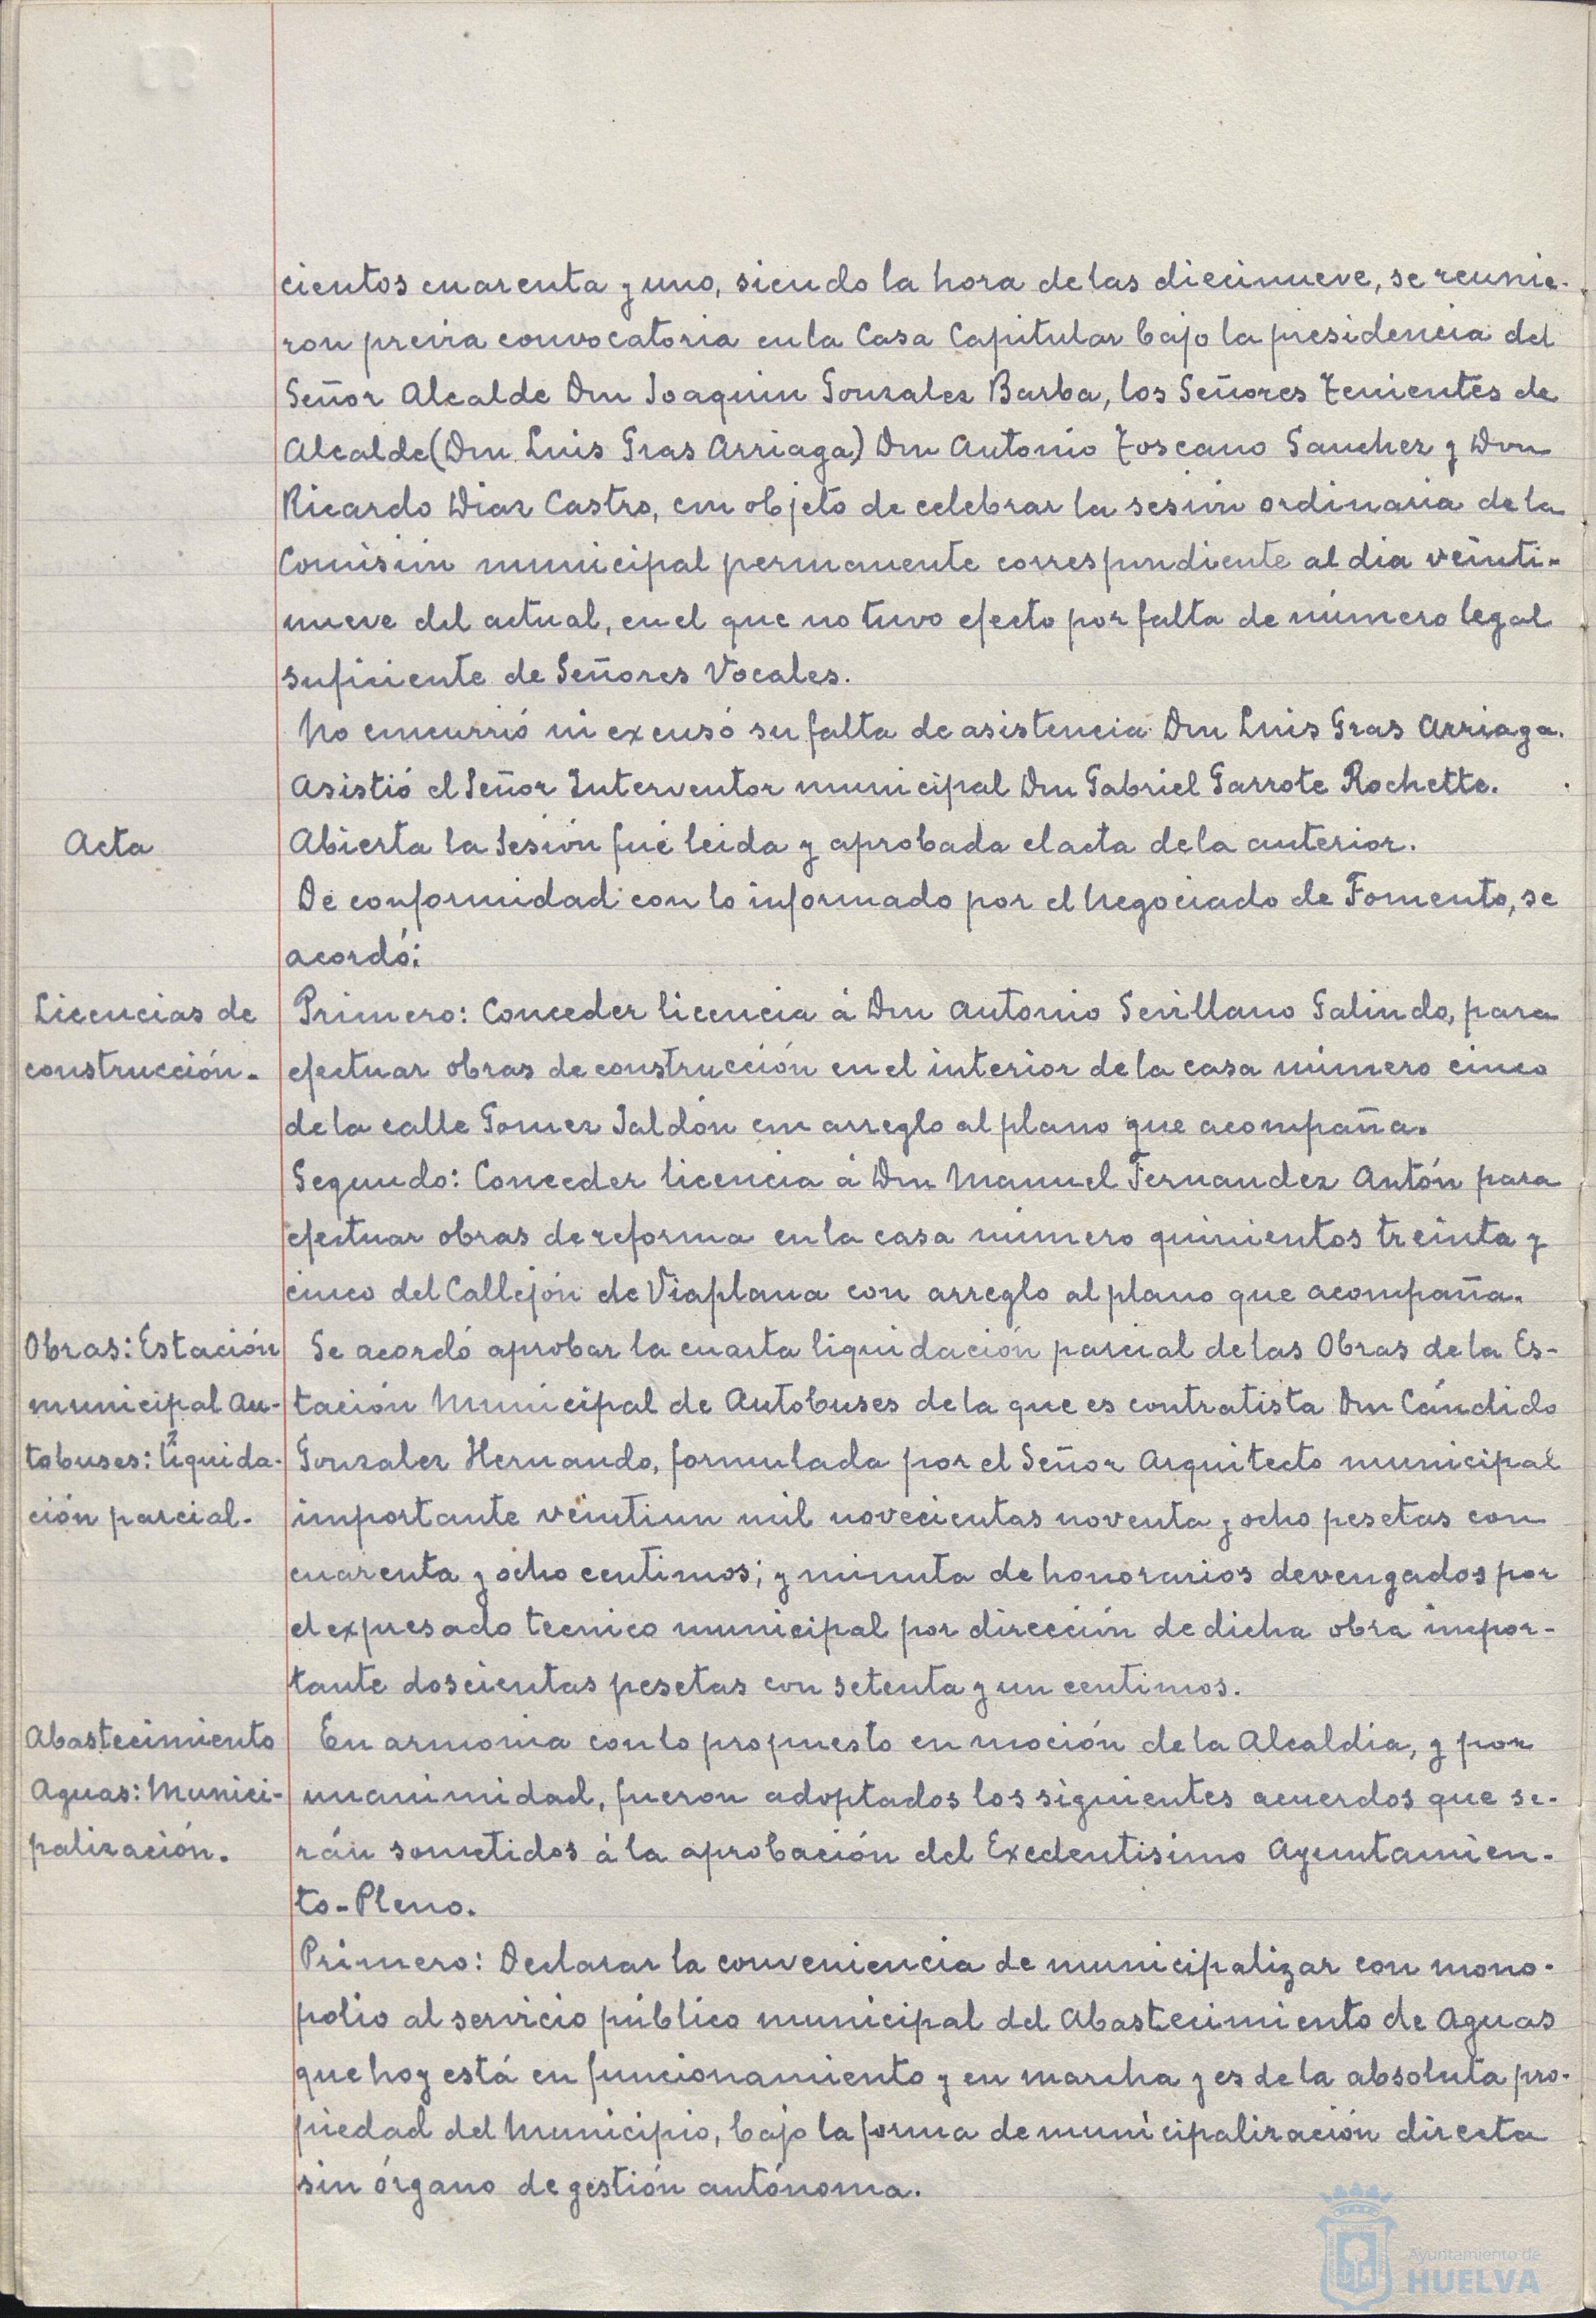 cientos cuarenta y uno, siendo la hora de las diecinueve, se reunie-
ron previa convocatoria en la Casa Capitular bajo la presidencia del
Señor Alcalde Don Joaquin Gonzalez Barba, los Señores Tenientes de
Alcalde (Don Luis Gras Arriaga) Don Antonio Toscano Sanchez y Don
Ricardo Diaz Castro, con objeto de celebrar la sesión ordinaria de la
Comisión municipal permanente correspondiente al dia veinti-
nueve del actual, en el que no tuvo efecto por falta de número legal
suficiente de Señores Vocales.
No concurrió ni excusó su falta de asistencia Don Luis Gras Arriaga.
Asistió el Señor Interventor municipal Don Gabriel Garrote Rochette.
Acta
Abierta la Sesión fué leida y aprobada el acta de la anterior.
De conformidad con lo informado por el Negociado de Fomento, se
acordó:
Licencias de
construcción.
Primero: Conceder licencia á Don Antonio Sevillano Galindo, para
efectuar obras de construcción en el interior de la casa número cinco
de la calle Gomez Jaldón con arreglo al plano que acompaña.
Segundo: Conceder licencia á Don Manuel Fernandez Antón para
efectuar obras de reforma en la casa número quinientos treinta y
cinco del Callejón de Viaplana con arreglo al plano que acompaña.
Obras: Estación
municipal Au-
tobuses: liquida-
ción parcial.
Se acordó aprobar la cuarta liquidación parcial de las Obras de la Es-
tación Municipal de Autobuses de la que es contratista Don Cándido
Gonzalez Hernando, formulada por el Señor Arquitecto municipal
importante veintiun mil novecientas noventa y ocho pesetas con
cuarenta y ocho centimos; y minuta de honorarios devengados por
el expresado tecnico municipal por dirección de dicha obra impor-
tante doscientas pesetas con setenta y un centimos.
Abastecimiento
Aguas: Munici-
palización.
En armonia con lo propuesto en moción de la Alcaldia, y por
unanimidad, fueron adoptados los siguientes acuerdos que se-
rán sometidos á la aprobación del Exedentisimo Ayuntamien-
to-Pleno.
Primero: Declarar la conveniencia de municipalizar con mono-
polio al servicio público municipal del Abastecimiento de Aguas
que hoy está en funcionamiento y en marcha y es de la absoluta pro-
piedad del Municipio, bajo la forma de municipalización directa
sin órgano de gestión autónoma.
Ayuntamiento de
HUELVA